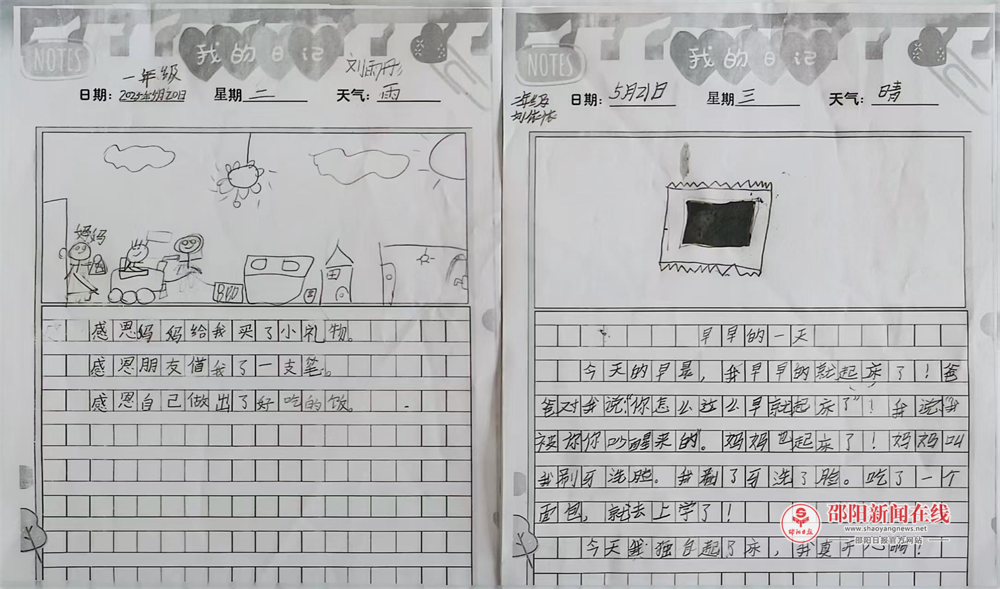 NOTES
我的日记
一年级
刘雨彤
日期：2025年5月20日 星期 二 天气： 雨
妈妈
感恩妈妈给我买了小礼物。
感恩朋友借我了一支笔。
感恩自己做出了好吃的饭。
NOTES
我的日记
日期： 5月21日 星期 三 天气： 晴
早早的一天
今天的早晨，我早早的就起床了！爸
爸对我说“你怎么这么早就起床了”！我说“我
被你叫醒来的”。妈妈也起床了！妈妈叫
我刷牙洗脸。我刷了牙洗了脸。吃了一个
面包，就去上学了！
今天我独自起了床，我真开心啊！
邵阳新闻在线
www.shaoyangnews.net
邵阳日报官方网站
邵阳日报